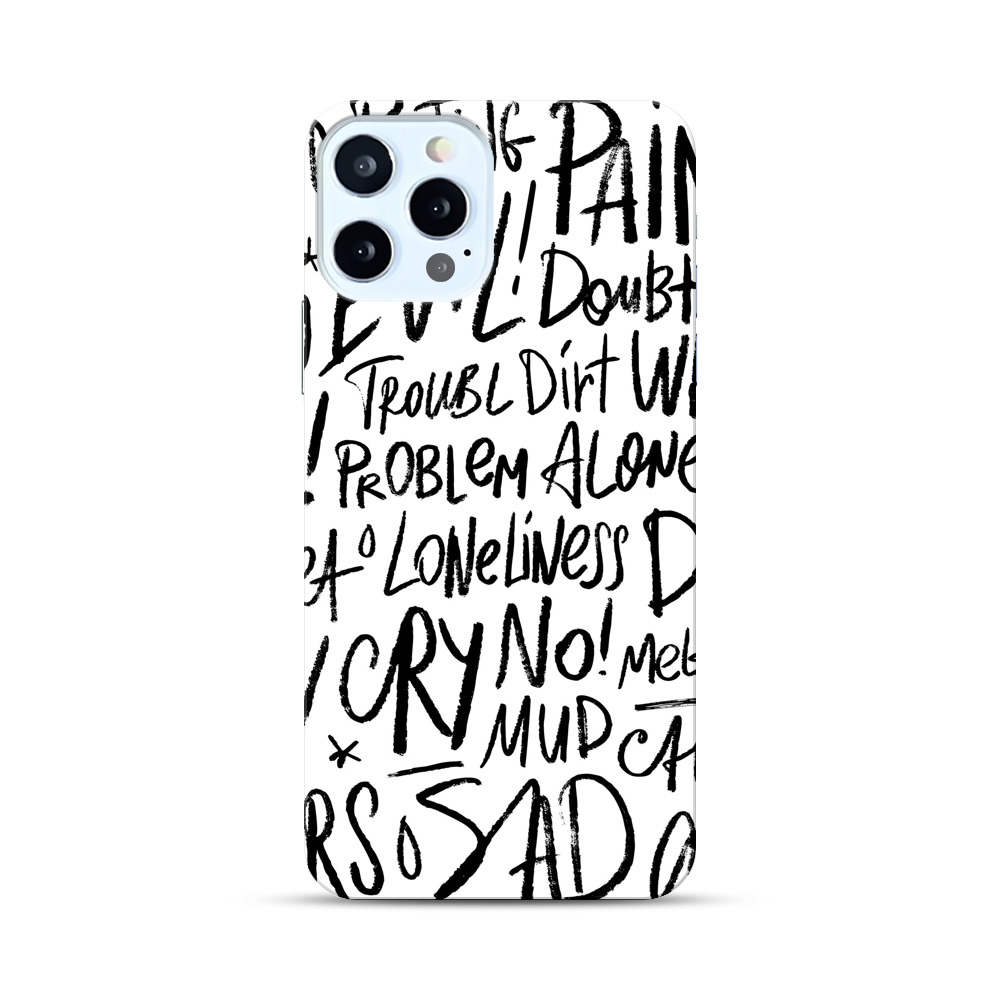 PAIN
EVIL! DoubT
TROUBL Dirt
! PROBLeM ALONE
LONeLiNeSS D
CRY NO!
MUD
RS SAD